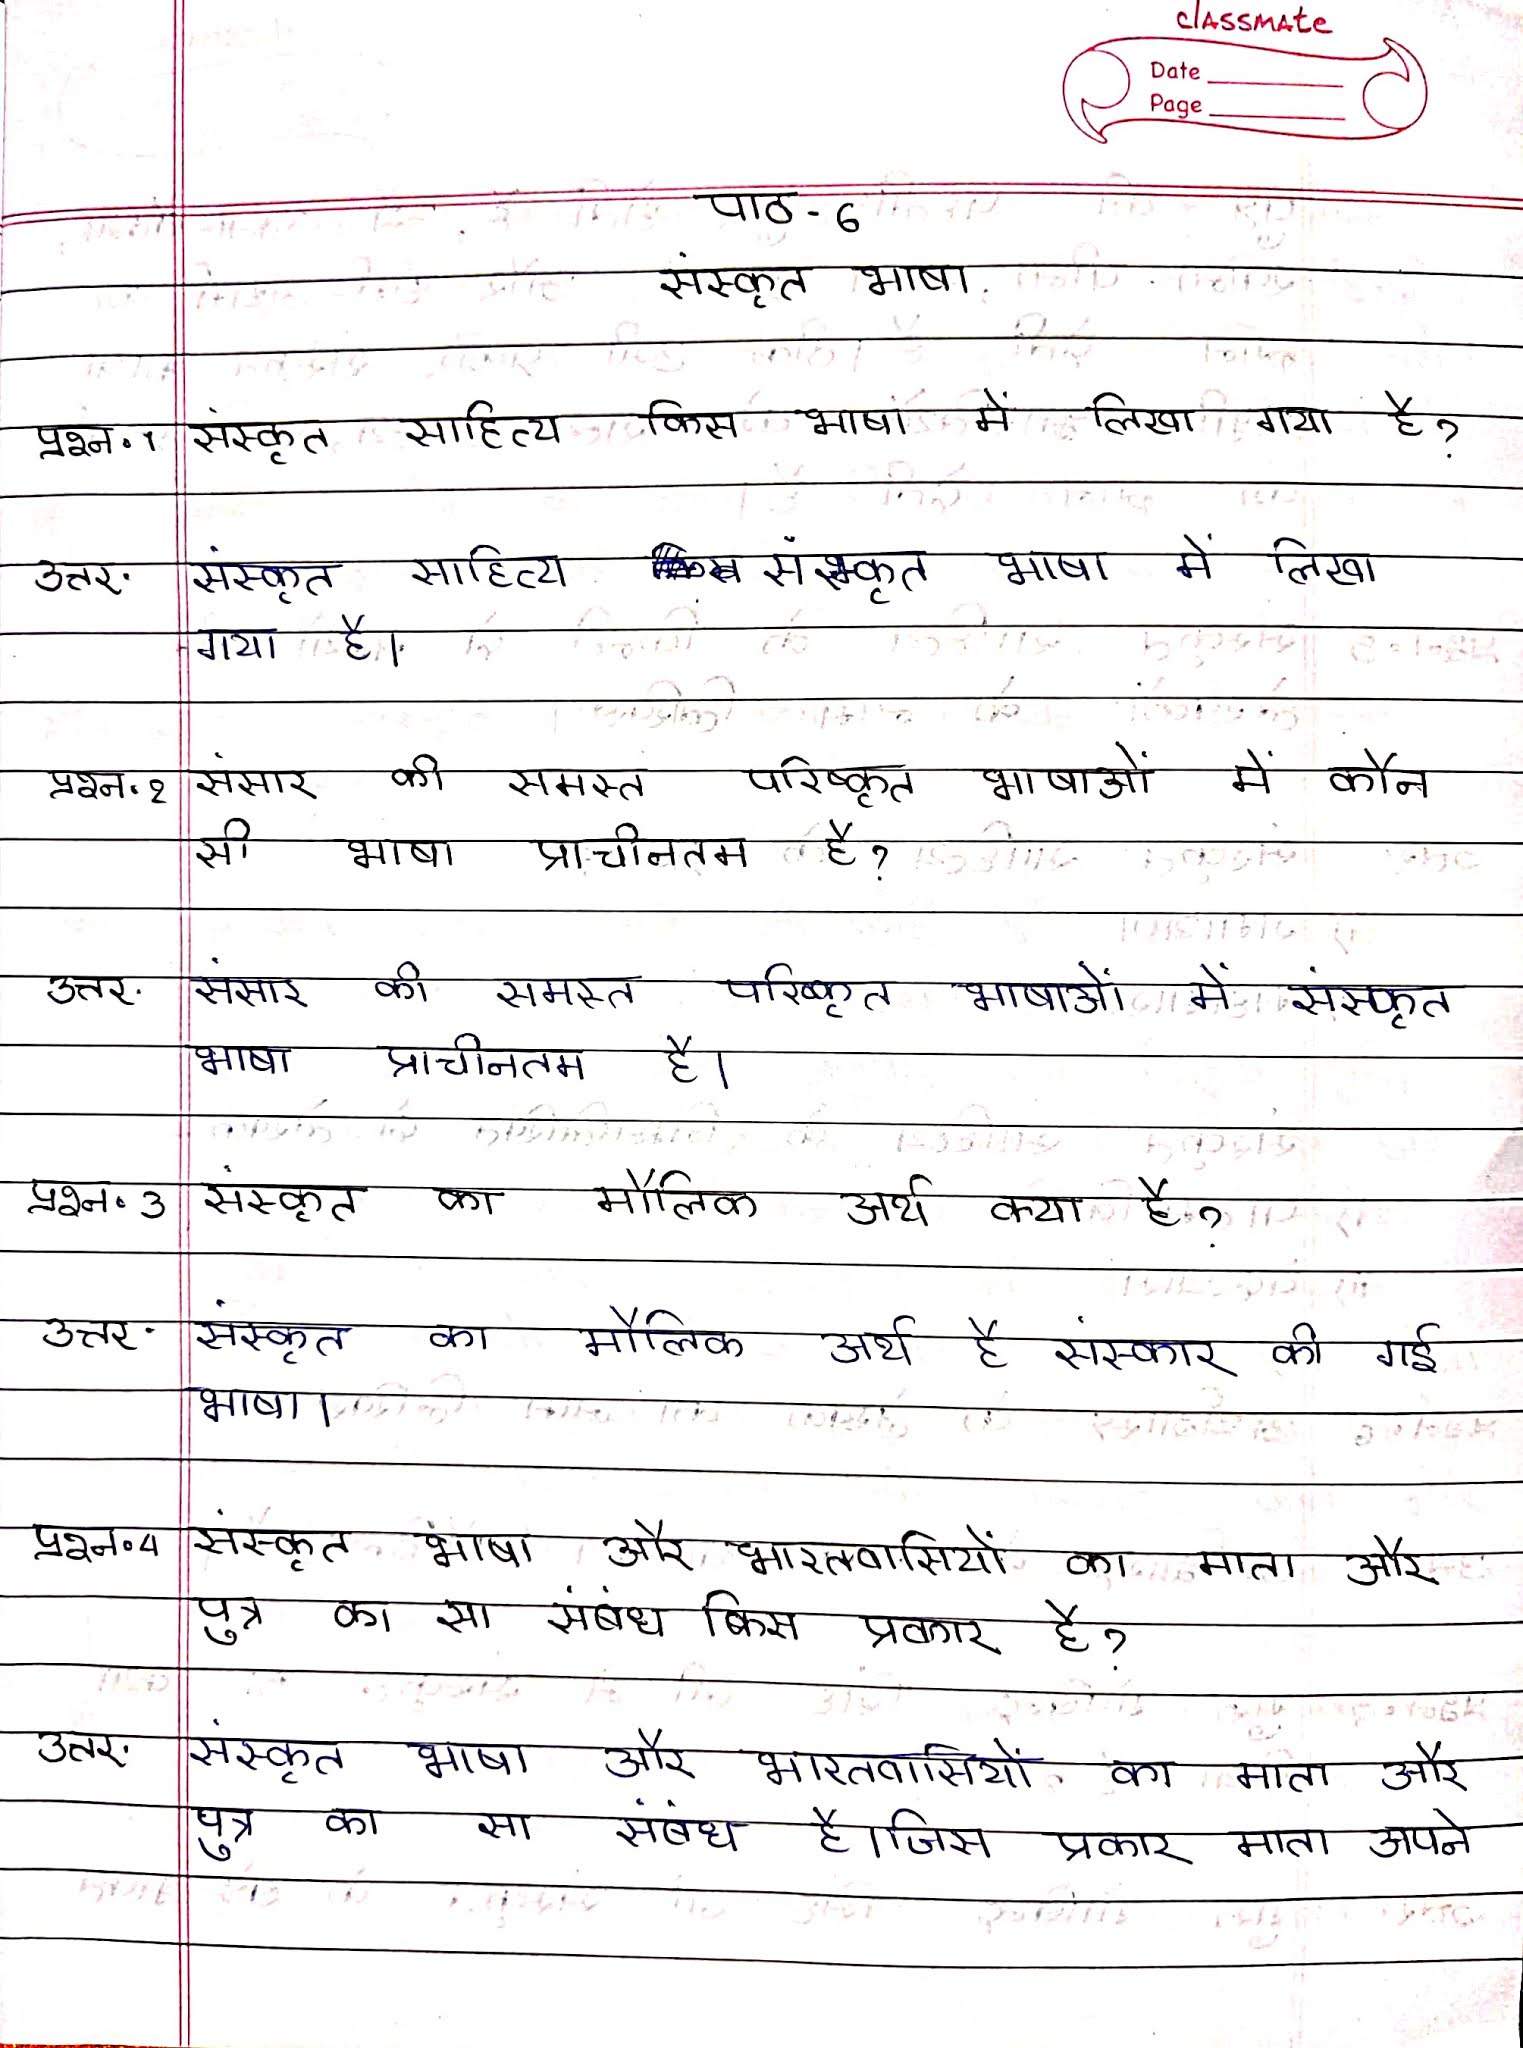 classmate
Date
Page
पाठ - 6
संस्कृत भाषा.
प्रश्न.1 संस्कृत साहित्य किस भाषा में लिखा गया है?
उत्तर. संस्कृत साहित्य संस्कृत भाषा में लिखा
गया है।
प्रश्न.2 संसार की समस्त परिष्कृत भाषाओं में कौन
सी भाषा प्राचीनतम है?
उत्तर. संसार की समस्त परिष्कृत भाषाओं में संस्कृत
भाषा प्राचीनतम है।
प्रश्न.3 संस्कृत का मौलिक अर्थ क्या है?
उत्तर. संस्कृत का मौलिक अर्थ है संस्कार की गई
भाषा।
प्रश्न.4 संस्कृत भाषा और भारतवासियों का माता और
पुत्र का सा संबंध किस प्रकार है?
उत्तर. संस्कृत भाषा और भारतवासियों का माता और
पुत्र का सा संबंध है। जिस प्रकार माता अपने